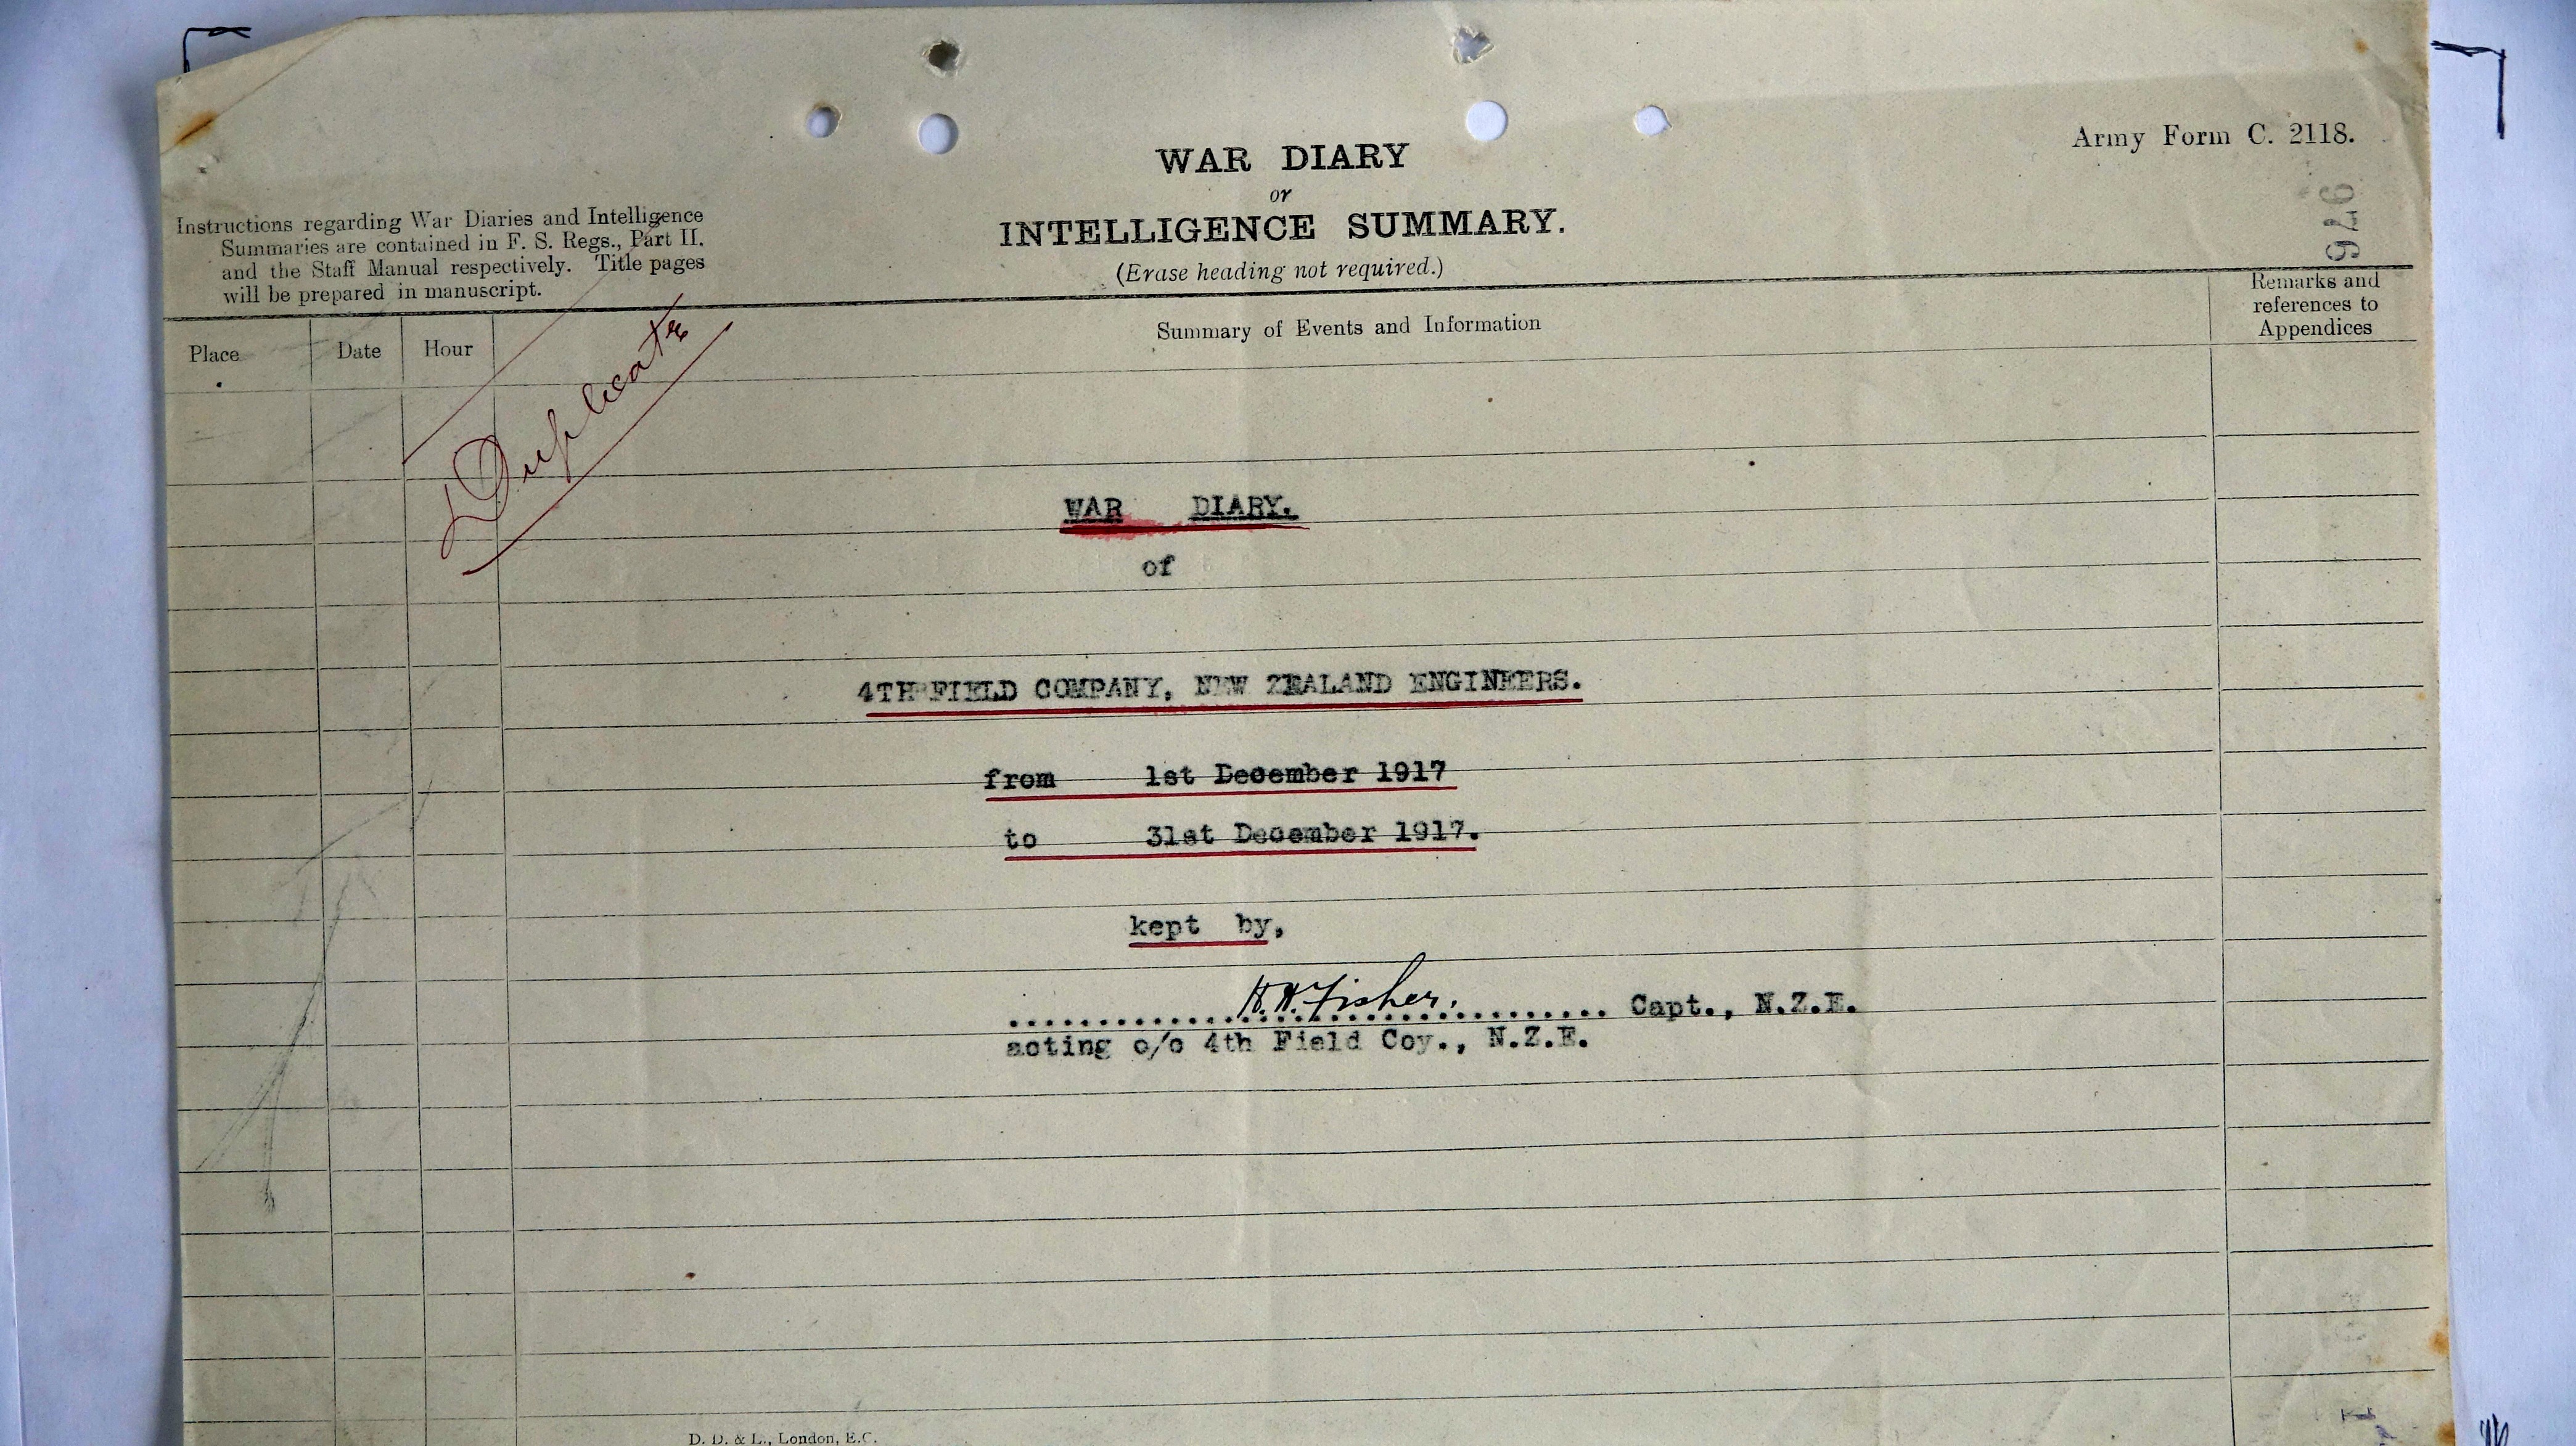 Army Form C. 2118.
WAR DIARY
or
INTELLIGENCE SUMMARY.
(Erase heading not required.)
Instructions regarding War Diaries and Intelligence
Summaries are contained in F. S. Regs., Part II.
and the Staff Manual respectively. Title pages
will be prepared in manuscript.
976
Place
Date
Hour
Summary of Events and Information
Remarks and
references to
Appendices
Duplicate
WAR DIARY.
of
4TH FIELD COMPANY, NEW ZEALAND ENGINEERS.
from 1st December 1917
to 31st December 1917.
kept by,
H.H. Fisher. Capt., N.Z.E.
acting o/c 4th Field Coy., N.Z.E.
D. D. & L., London, E.C.